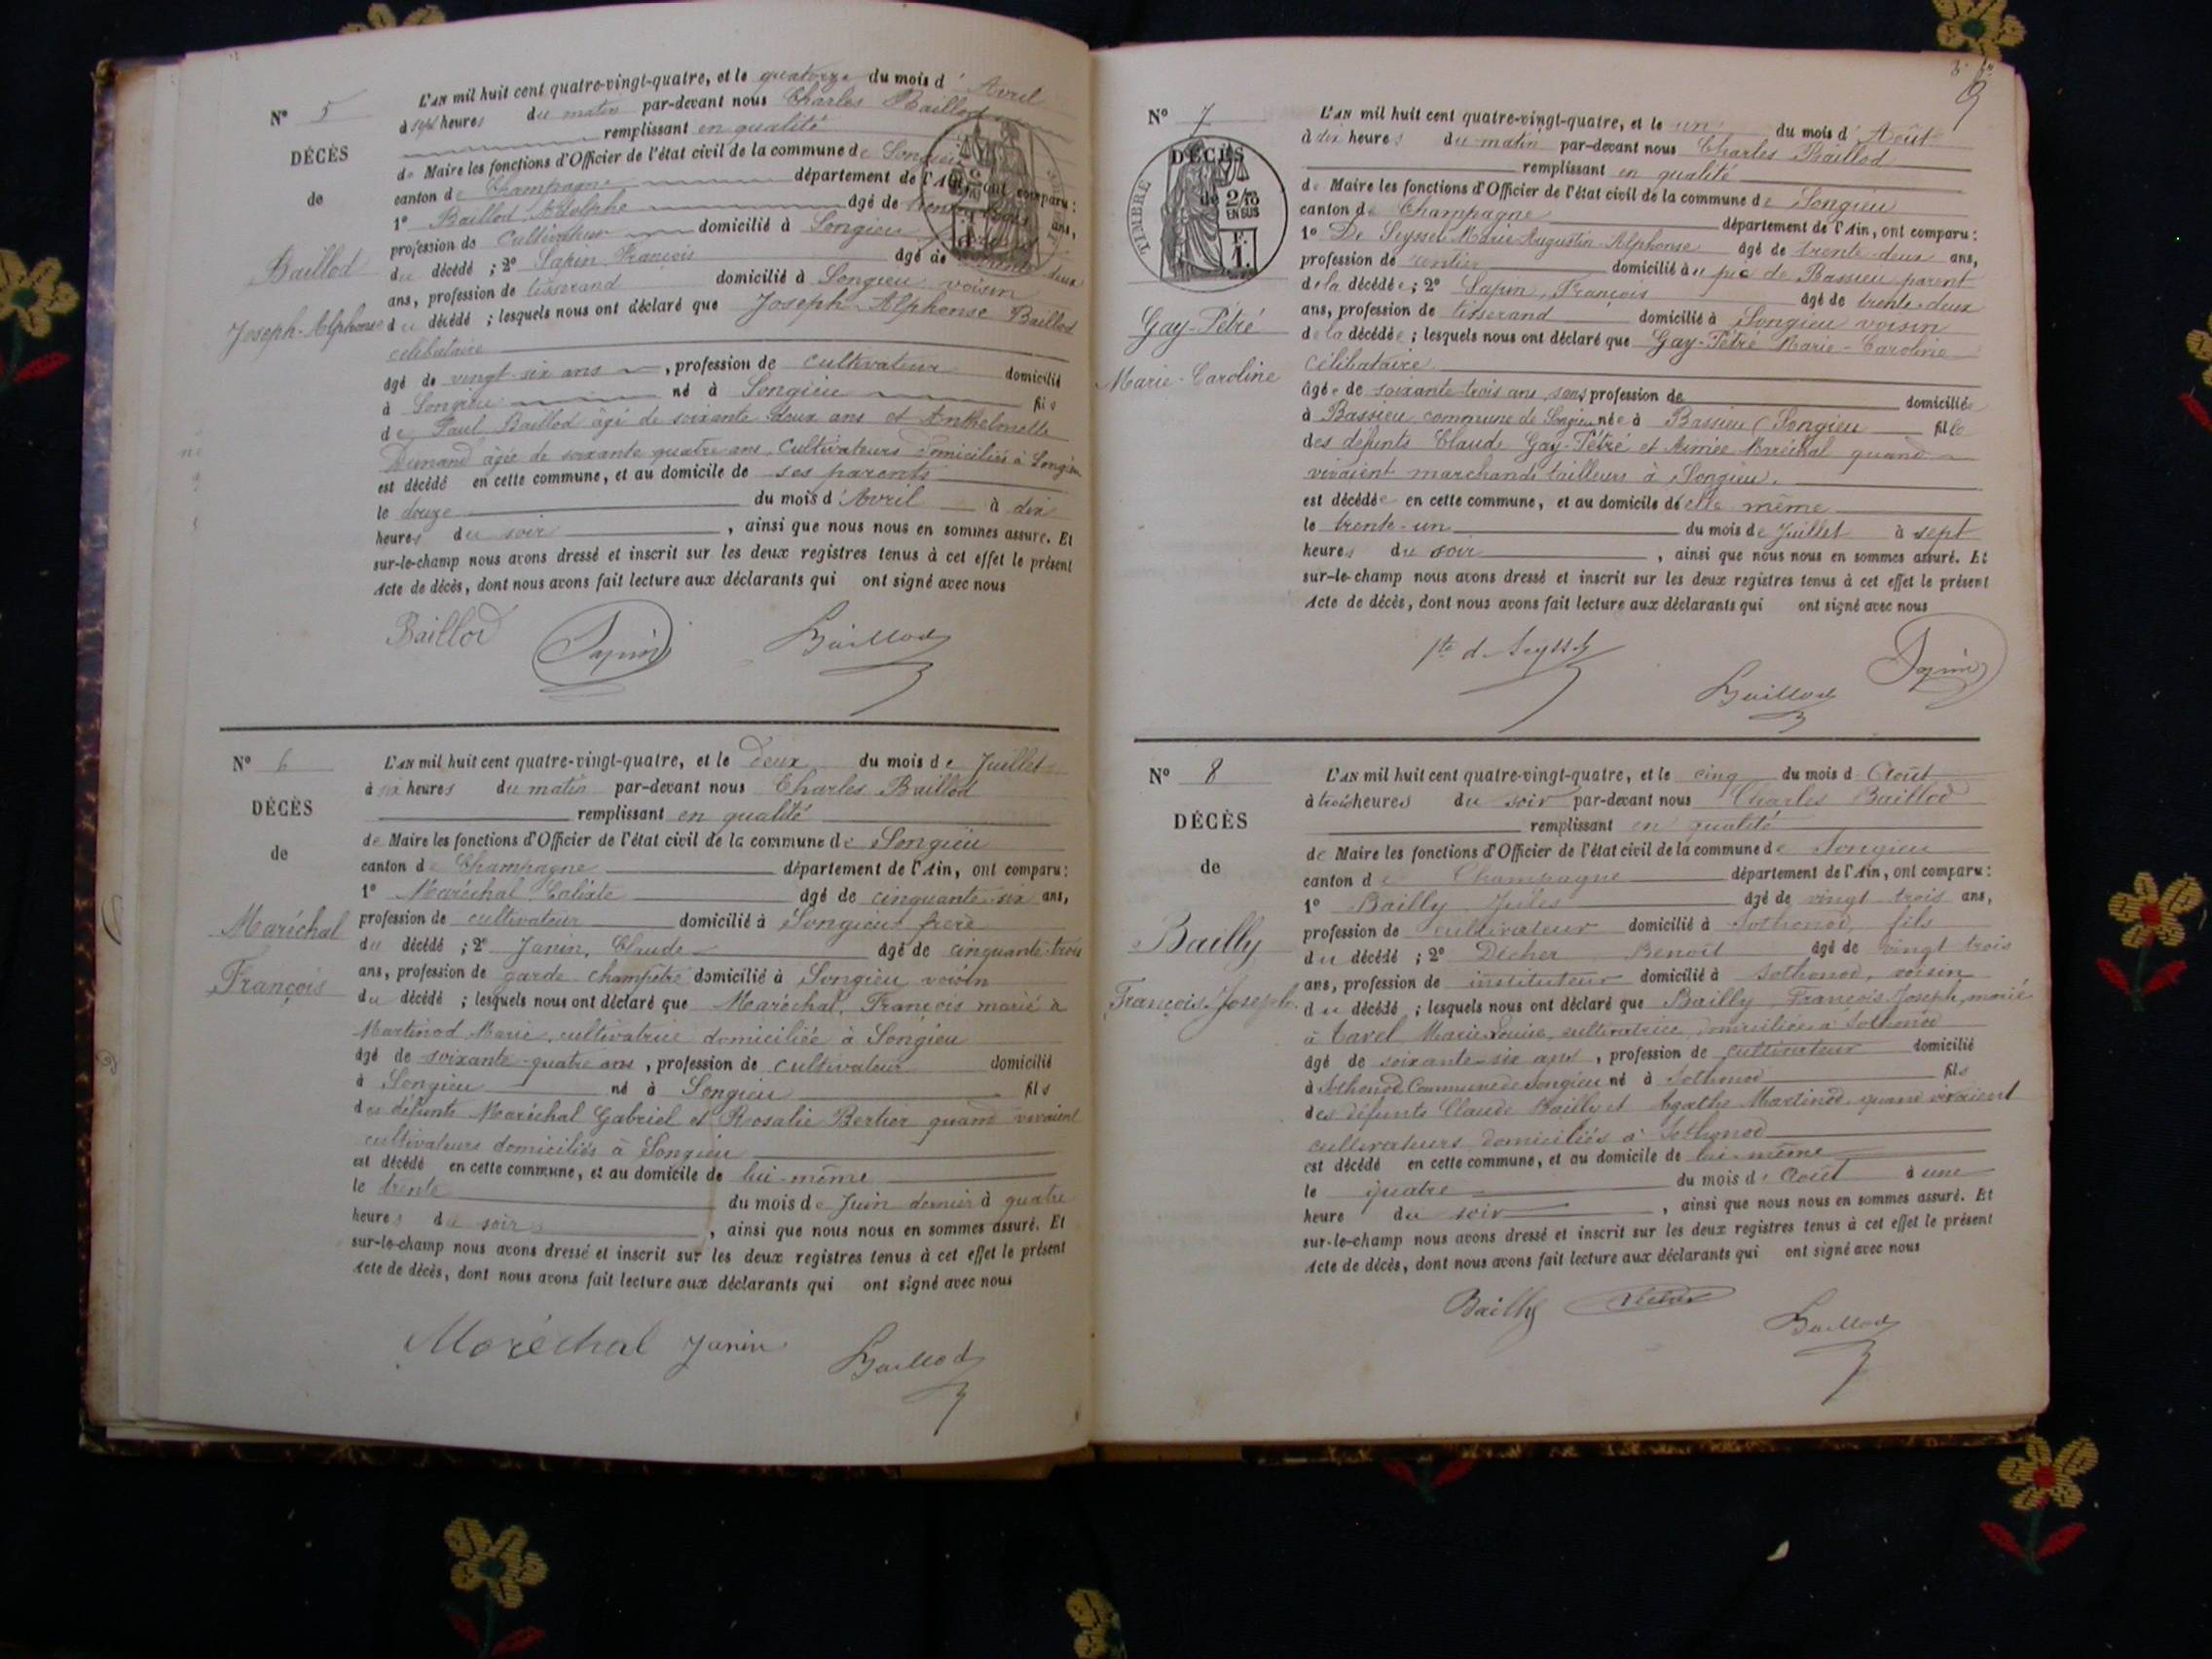 N° 5
DÉCÈS
de
Baillod
Joseph-Alphonse
L'AN mil huit cent quatre-vingt-quatre, et le quatorze du mois d'Avril
à sept heures du matin par-devant nous Charles Baillod
remplissant en qualité
de Maire les fonctions d'Officier de l'état civil de la commune de Songieu
canton de Champagne département de l'Ain, ont comparu :
1° Baillod, Adolphe âgé de ans,
profession de Cultivateur domicilié à Songieu,
du décédé ; 2° Sapin, François âgé de trente-deux
ans, profession de tisserand domicilié à Songieu voisin
du décédé ; lesquels nous ont déclaré que Joseph-Alphonse Baillod
célibataire
âgé de vingt-six ans, profession de cultivateur domicilié
à Songieu né à Songieu fils
de Paul Baillod âgé de soixante deux ans et Anthelmette
Dunand âgée de soixante quatre ans, cultivateurs domiciliés à Songieu
est décédé en cette commune, et au domicile de ses parents
le douze du mois d'Avril à dix
heures du soir, ainsi que nous nous en sommes assuré. Et
sur-le-champ nous avons dressé et inscrit sur les deux registres tenus à cet effet le présent
Acte de décès, dont nous avons fait lecture aux déclarants qui ont signé avec nous
Baillod Sapin Baillod
N° 6
DÉCÈS
de
Maréchal
François
L'AN mil huit cent quatre-vingt-quatre, et le deux du mois de Juillet
à six heures du matin par-devant nous Charles Baillod
remplissant en qualité
de Maire les fonctions d'Officier de l'état civil de la commune de Songieu
canton de Champagne département de l'Ain, ont comparu :
1° Maréchal, Calixte âgé de cinquante-six ans,
profession de cultivateur domicilié à Songieu frère
du décédé ; 2° Janin, Claude âgé de cinquante-trois
ans, profession de garde champêtre domicilié à Songieu voisin
du décédé ; lesquels nous ont déclaré que Maréchal, François marié à
Martinod Marie, cultivatrice domiciliée à Songieu
âgé de soixante-quatre ans, profession de cultivateur domicilié
à Songieu né à Songieu fils
des défunts Maréchal Gabriel et Rosalie Bertier quand vivaient
cultivateurs domiciliés à Songieu
est décédé en cette commune, et au domicile de lui-même
le trente du mois de Juin dernier à quatre
heures du soir, ainsi que nous nous en sommes assuré. Et
sur-le-champ nous avons dressé et inscrit sur les deux registres tenus à cet effet le présent
Acte de décès, dont nous avons fait lecture aux déclarants qui ont signé avec nous
Maréchal Janin Baillod
9
N° 7
DÉCÈS
de
TIMBRE
2/10
EN SUS
F.
1.
Gay-Pétré
Marie-Caroline
L'AN mil huit cent quatre-vingt-quatre, et le un du mois d'Août
à dix heures du matin par-devant nous Charles Baillod
remplissant en qualité
de Maire les fonctions d'Officier de l'état civil de la commune de Songieu
canton de Champagne département de l'Ain, ont comparu :
1° De Seyssel Marie Augustin-Alphonse âgé de trente-deux ans,
profession de rentier domicilié à de Bassieu parent
de la décédée ; 2° Sapin, François âgé de trente-deux
ans, profession de tisserand domicilié à Songieu voisin
de la décédée ; lesquels nous ont déclaré que Gay-Pétré Marie-Caroline
célibataire
âgée de soixante-trois ans, sans profession de domiciliée
à Bassieu commune de Songieu née à Bassieu (Songieu fille
des défunts Claude Gay-Pétré et Aimée Maréchal quand
vivaient marchands tailleurs à Songieu.
est décédée en cette commune, et au domicile de elle même
le trente-un du mois de Juillet à sept
heures du soir, ainsi que nous nous en sommes assuré. Et
sur-le-champ nous avons dressé et inscrit sur les deux registres tenus à cet effet le présent
Acte de décès, dont nous avons fait lecture aux déclarants qui ont signé avec nous
de Seyssel Baillod Sapin
N° 8
DÉCÈS
de
Bailly
François-Joseph
L'AN mil huit cent quatre-vingt-quatre, et le cinq du mois d'Août
à trois heures du soir par-devant nous Charles Baillod
remplissant en qualité
de Maire les fonctions d'Officier de l'état civil de la commune de Songieu
canton de Champagne département de l'Ain, ont comparu :
1° Bailly Jules âgé de vingt trois ans,
profession de cultivateur domicilié à Sothonod, fils
du décédé ; 2° Décher Benoît âgé de vingt trois
ans, profession de instituteur domicilié à Sothonod, voisin
du décédé ; lesquels nous ont déclaré que Bailly François Joseph, marié
à Tavel Marie Louise, cultivatrice, domiciliée à Sothonod
âgé de soixante-six ans, profession de cultivateur domicilié
à Sothonod Commune de Songieu né à Sothonod fils
des défunts Claude Bailly et Agathe Martinod, quand vivaient
cultivateurs domiciliés à Sothonod
est décédé en cette commune, et au domicile de lui-même
le quatre du mois d'Août à une
heure du soir, ainsi que nous nous en sommes assuré. Et
sur-le-champ nous avons dressé et inscrit sur les deux registres tenus à cet effet le présent
Acte de décès, dont nous avons fait lecture aux déclarants qui ont signé avec nous
Bailly Baillod